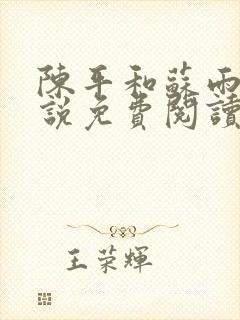 陳平和蘇雨
說免費閱讀
王荣輝